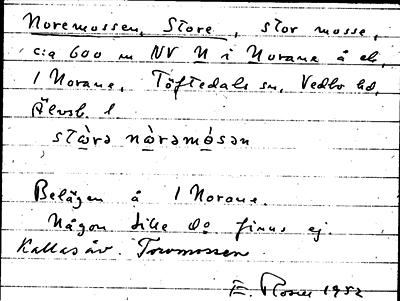 Noremossen, Store, stor mosse,
c:a 600 m NV N i Norane å ek,
1 Norane, Töftedals sn, Vedbo hd,
Älvsb. l
stæ̀rə næ̀rəmósən
Belägen å 1 Norane.
Någon lille do finns ej.
Kallas äv. Toromossen
E. Rosell 1952